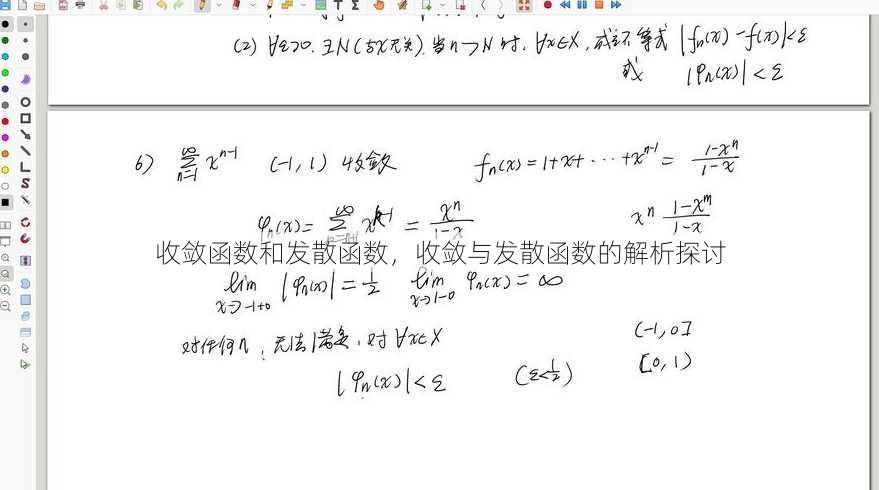 (2) ∀ε>0. ∃N(与x无关). 当n→N时, ∀x∈X, 成立不等式 |fₙ(x) - f(x)|<ε
或 |φₙ(x)| < ε
6) ∑_{n=1}^{∞} x^{n-1} (-1, 1) 收敛 fₙ(x) = 1+x+ ··· +x^{n-1} = \frac{1-x^n}{1-x}
φₙ(x) = ∑_{k=n+1}^{∞} x^{k-1} = \frac{x^n}{1-x} x^n \frac{1-x^m}{1-x}
收敛函数和发散函数，收敛与发散函数的解析探讨
lim_{x→-1+0} |φₙ(x)| = \frac{1}{2} lim_{x→1-0} φₙ(x) = ∞
对任何n, 无法满足, 对∀x∈X (-1, 0]
|φₙ(x)| < ε (ε<\frac{1}{2}) [0, 1)